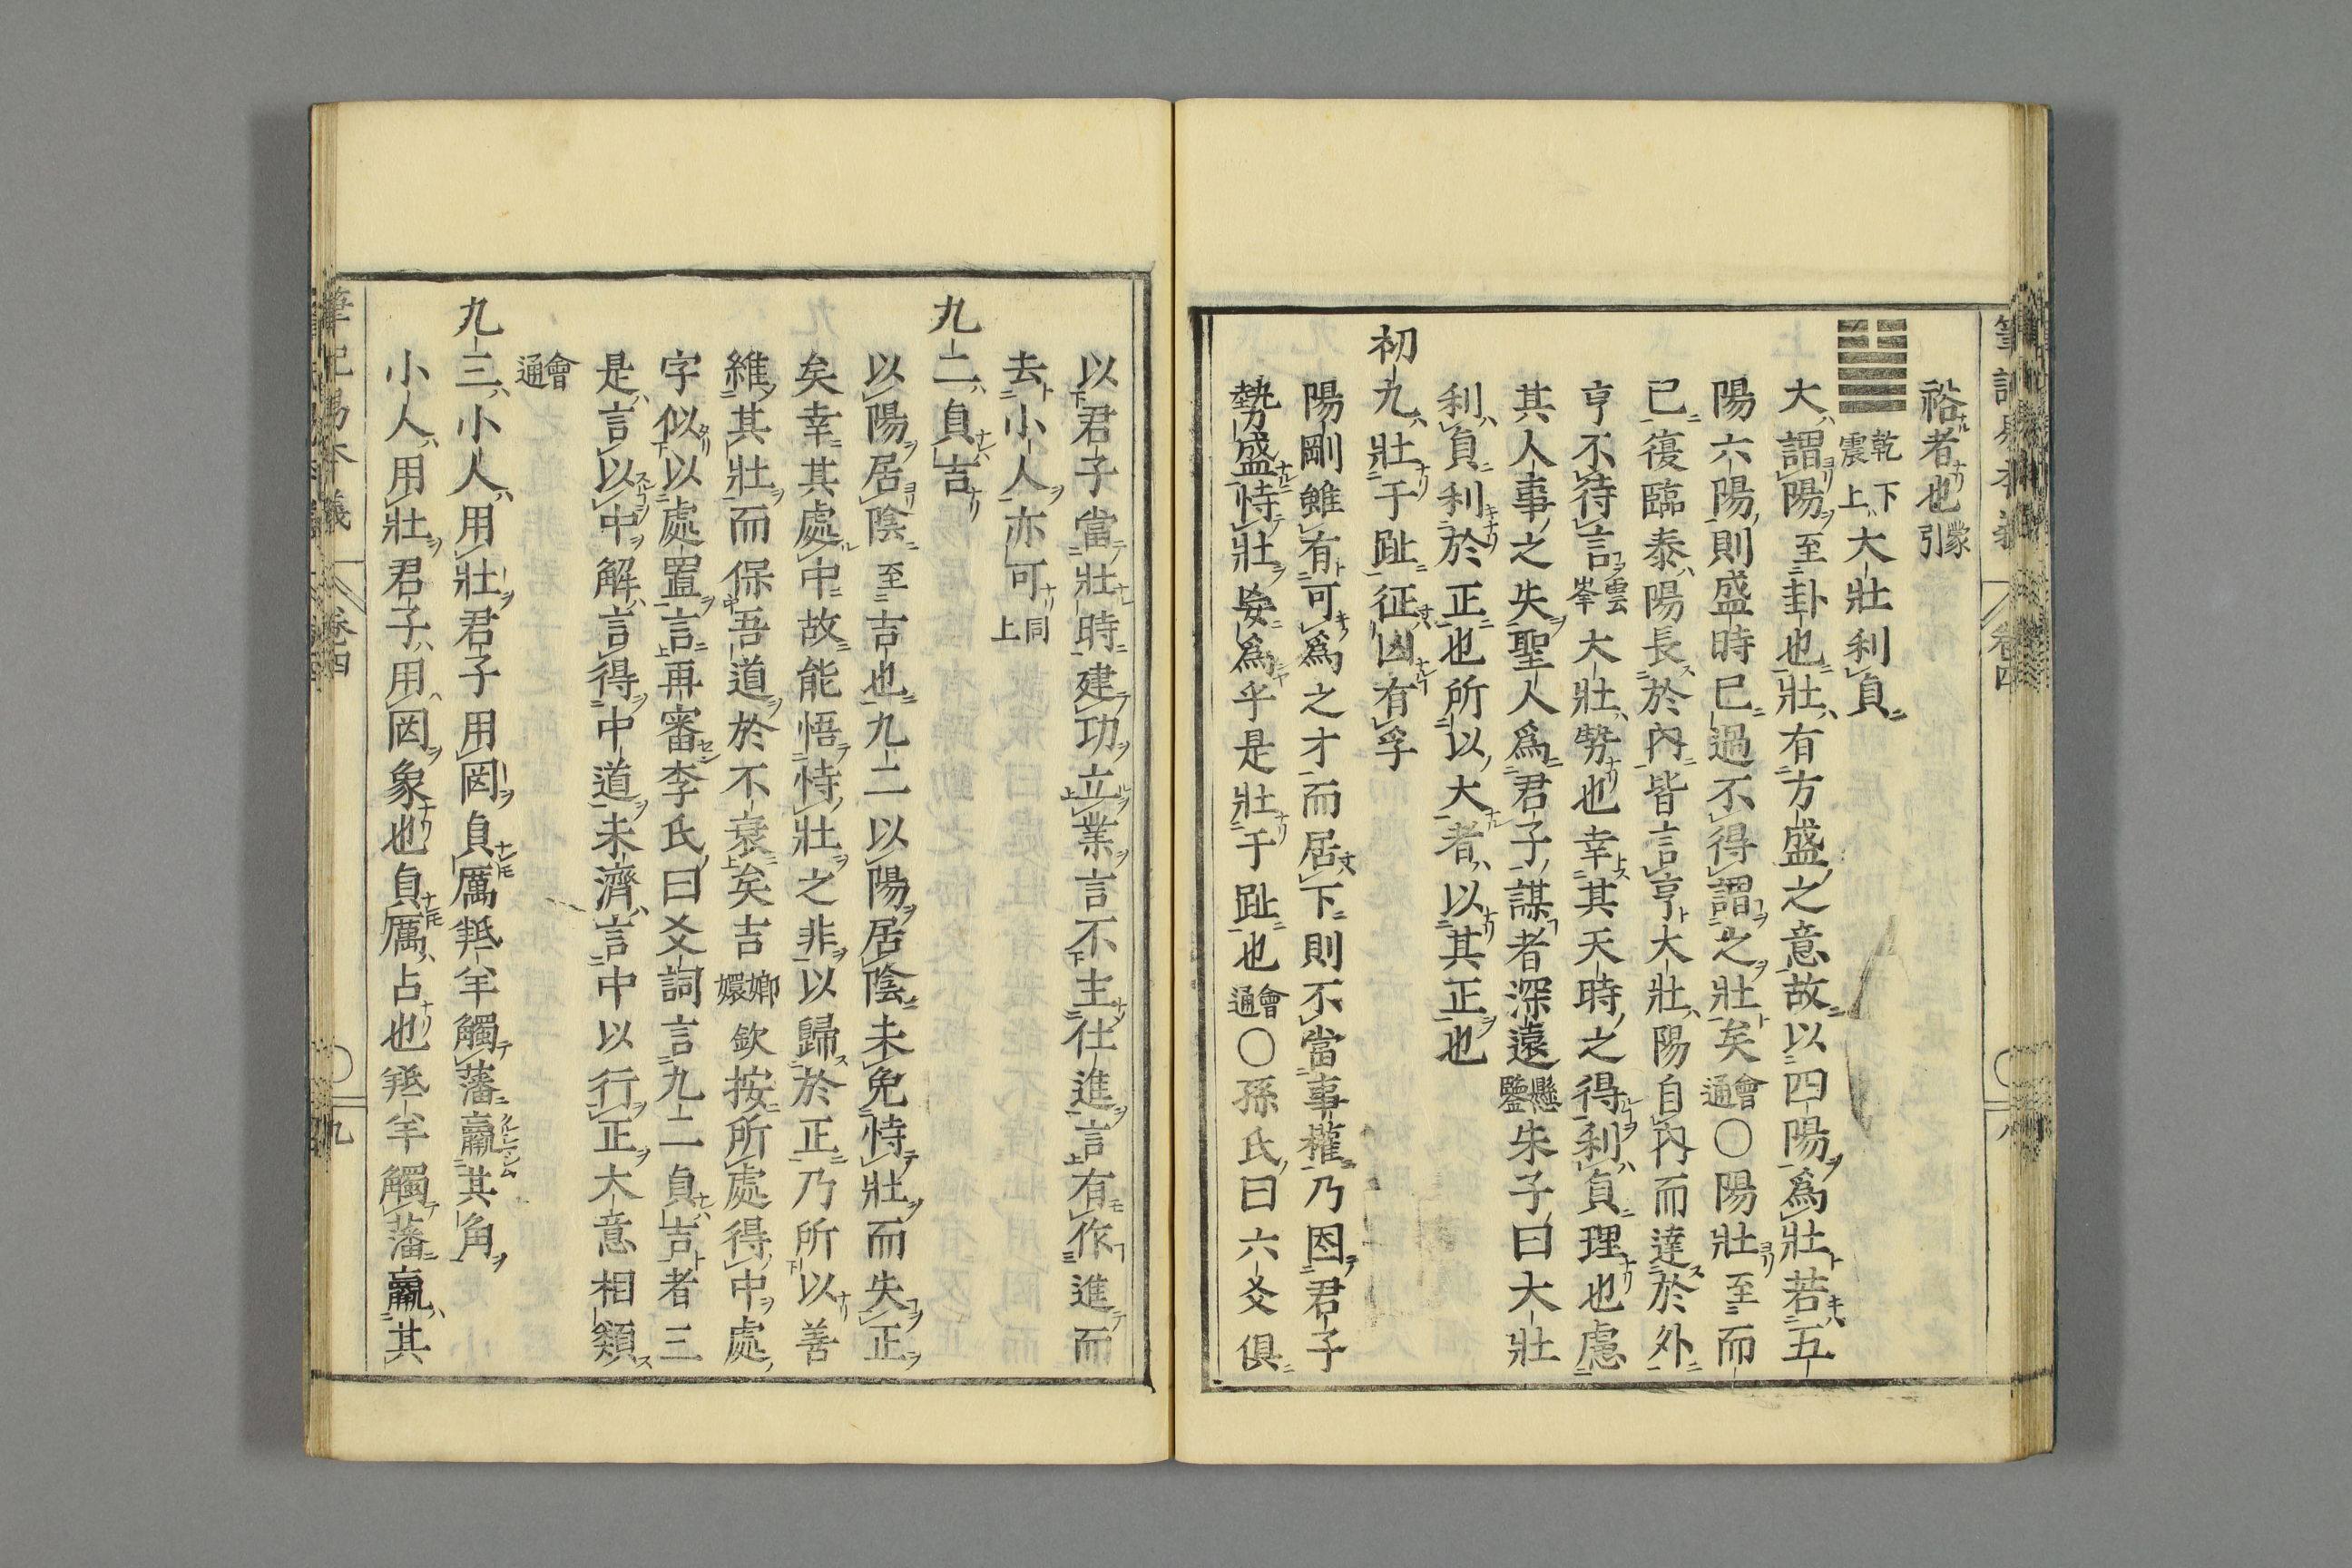 裕者也蒙引
乾下震上大壯利貞
大謂陽至卦也壯有方盛之意故以四陽爲壯若五
陽六陽則盛時已過不得謂之壯矣會通〇陽壯至而
已復臨泰陽長於內皆言亨大壯陽自內而達於外
亨不待言雲峯大壯勢也幸其天時之得利貞理也慮
其人事之失聖人爲君子謀者深遠懸鑒朱子曰大壯
利貞利於正也所以大者以其正也
初九壯于趾征凶有孚
陽剛雖有可爲之才而居下則不當事權乃因君子
勢盛恃壯妄爲乎是壯于趾也會通〇孫氏曰六爻俱
以君子當壯時建功立業言不主仕進言有作進而
去小人亦可同上
九二貞吉
以陽居陰至吉也九二以陽居陰未免恃壯而失正
矣幸其處中故能悟恃壯之非以歸於正乃所以善
維其壯而保吾道於不衰矣吉嫏嬛欽按所處得中處
字似以處置言再審李氏曰爻詞言九二貞吉者三
是言以中解言得中道未濟言中以行正大意相類
會通
九三小人用壯君子用罔貞厲羝羊觸藩羸其角
小人用壯君子用罔象也貞厲占也羝羊觸藩羸其
卷四
九